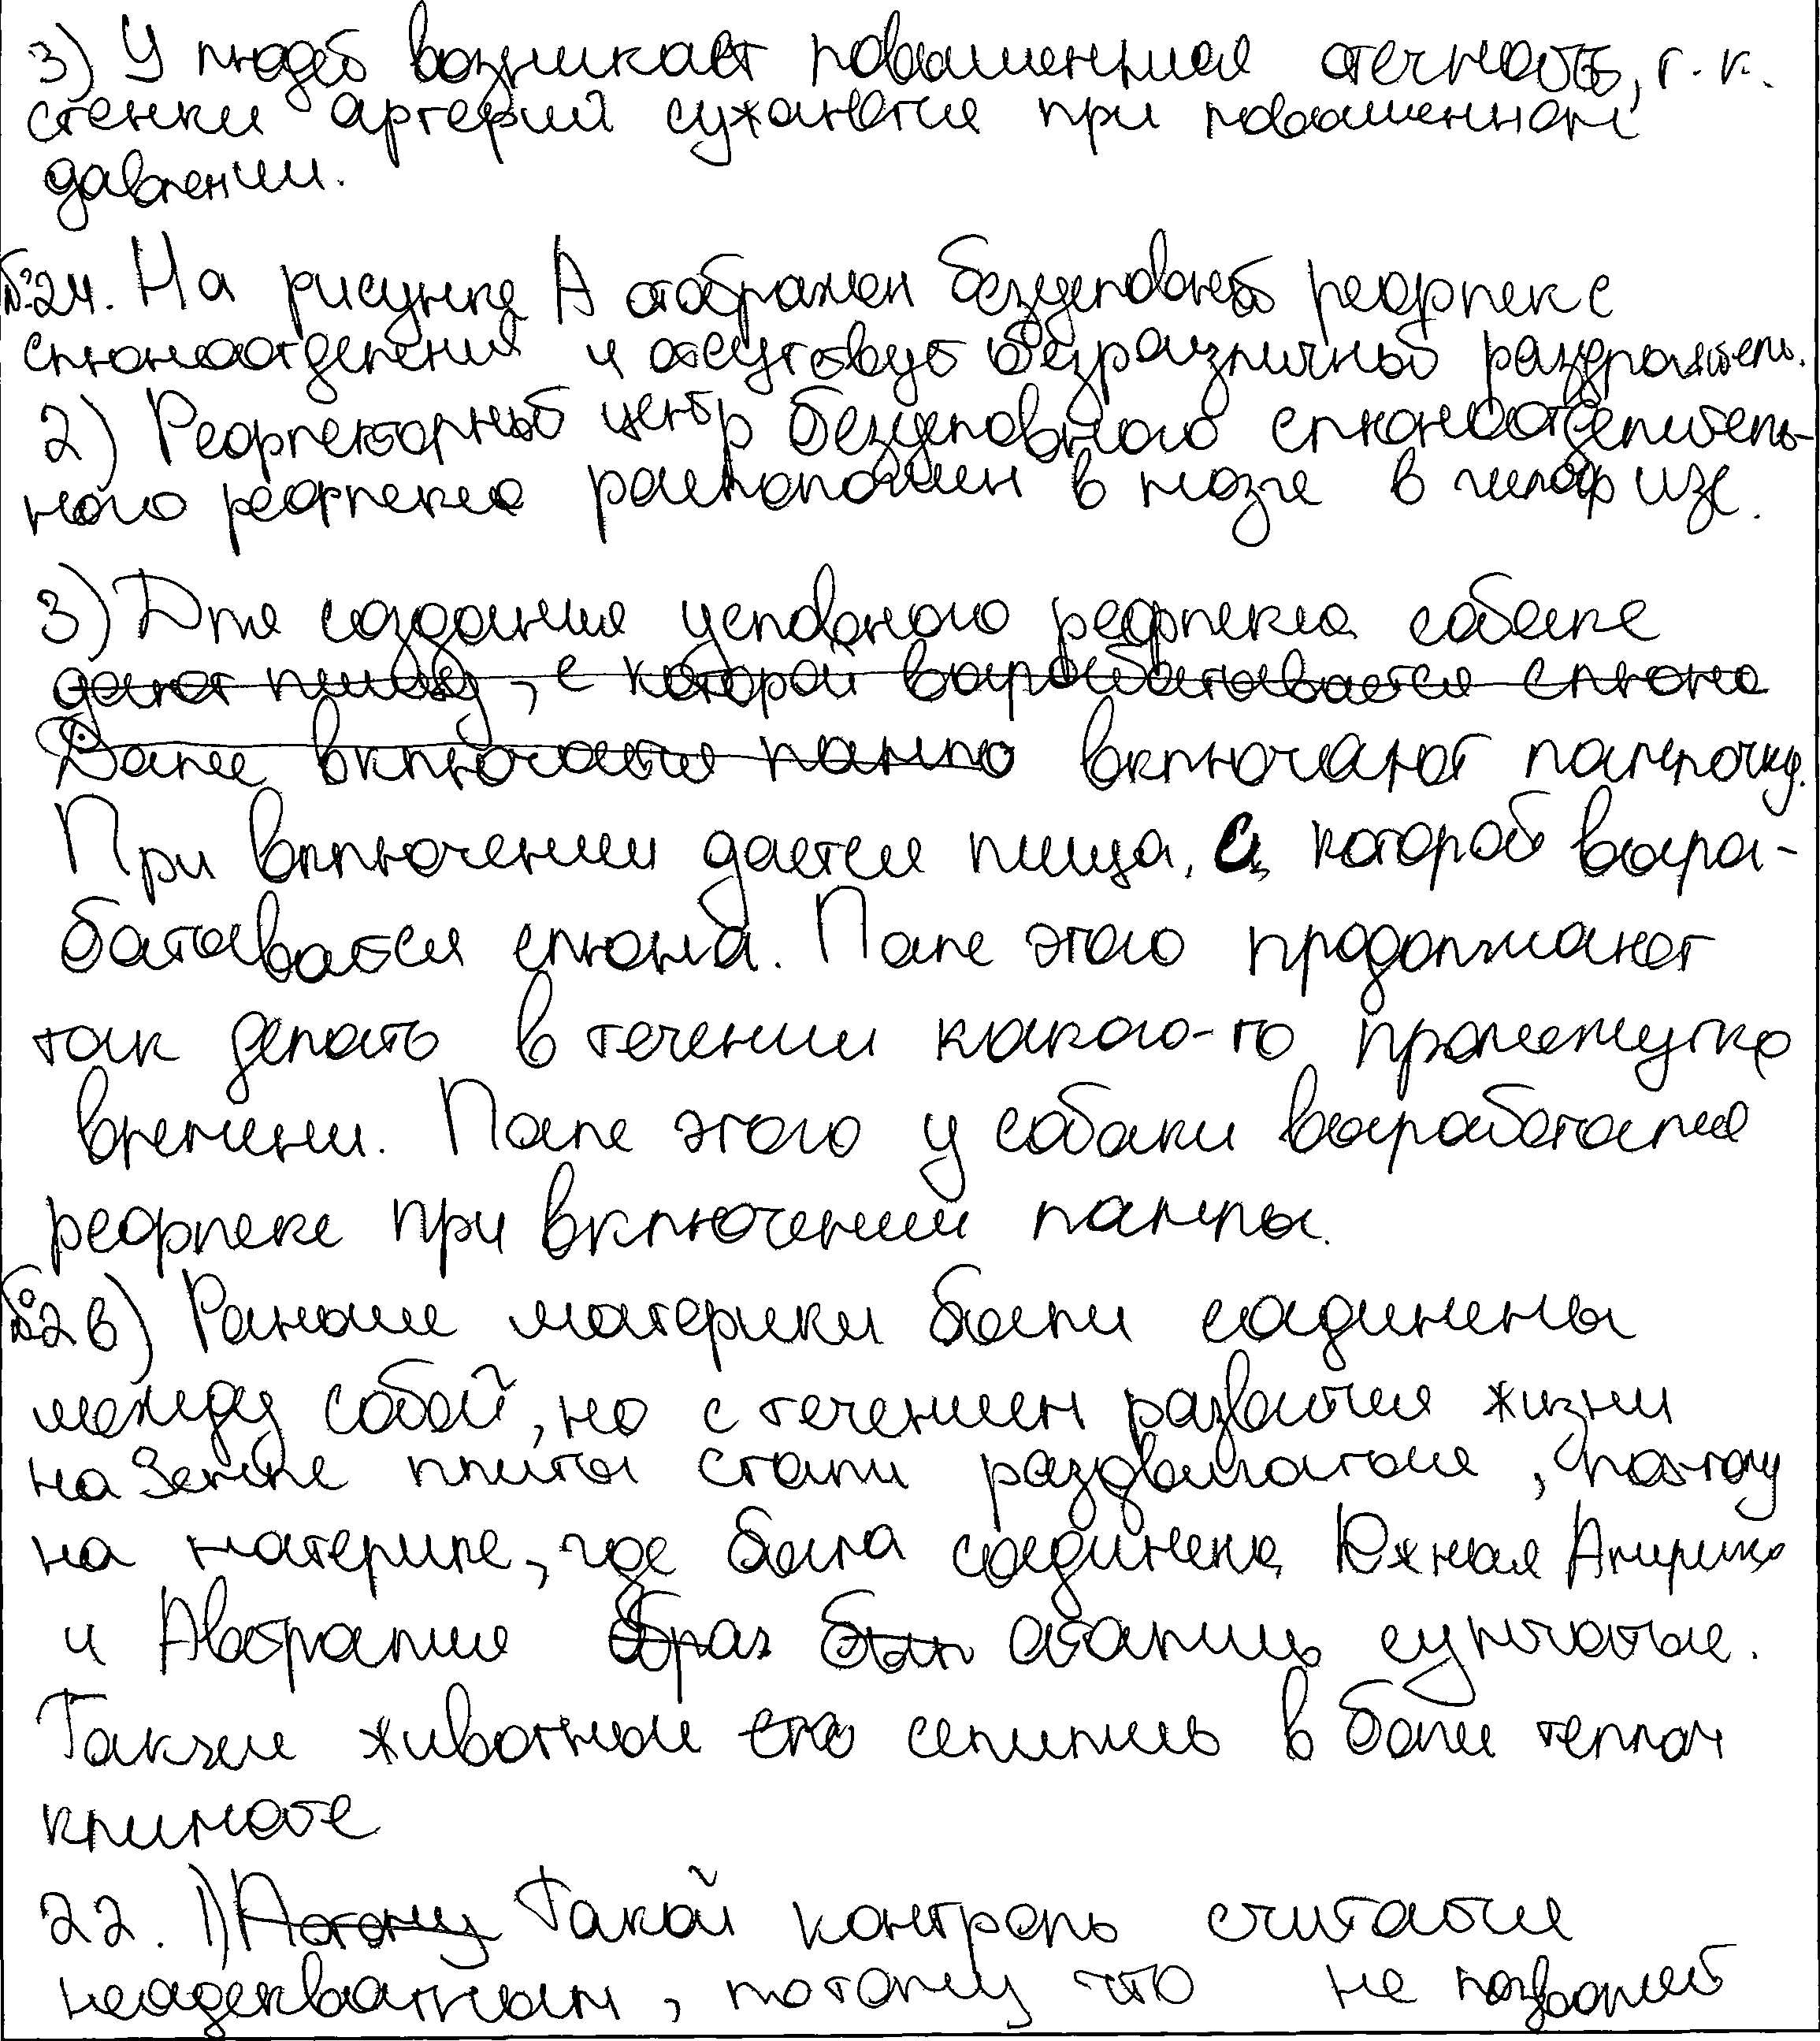 3) У людей возникает повышенная отечность, т.к.
стенки артерий сужаются при повышенном
давлении.
№24. На рисунке А отображен безусловный рефлекс
слюноотделения и отсутствует безразличный раздражитель.
2) Рефлекторный центр безусловного слюноотделитель-
ного рефлекса расположен в мозге в гипофизе.
3) Для создания условного рефлекса собаке
дают пищу, с которой вырабатывается слюна
Далее включается лампа включают лампочку.
При включении дается пища, с которой выра-
батывается слюна. После этого продолжают
так делать в течении какого-то промежутка
времени. После этого у собаки выработался
рефлекс при включении лампы.
№26) Раньше материки были соединены
между собой, но с течением развития жизни
на Земле плиты стали раздвигаться, поэтому
на материке, где была соединена Южная Америка
и Австралия образ был остались сумчатые.
Также животные селились в более теплом
климате
22. 1) Потому Такой контроль считается
неадекватным, потому что не позволяет